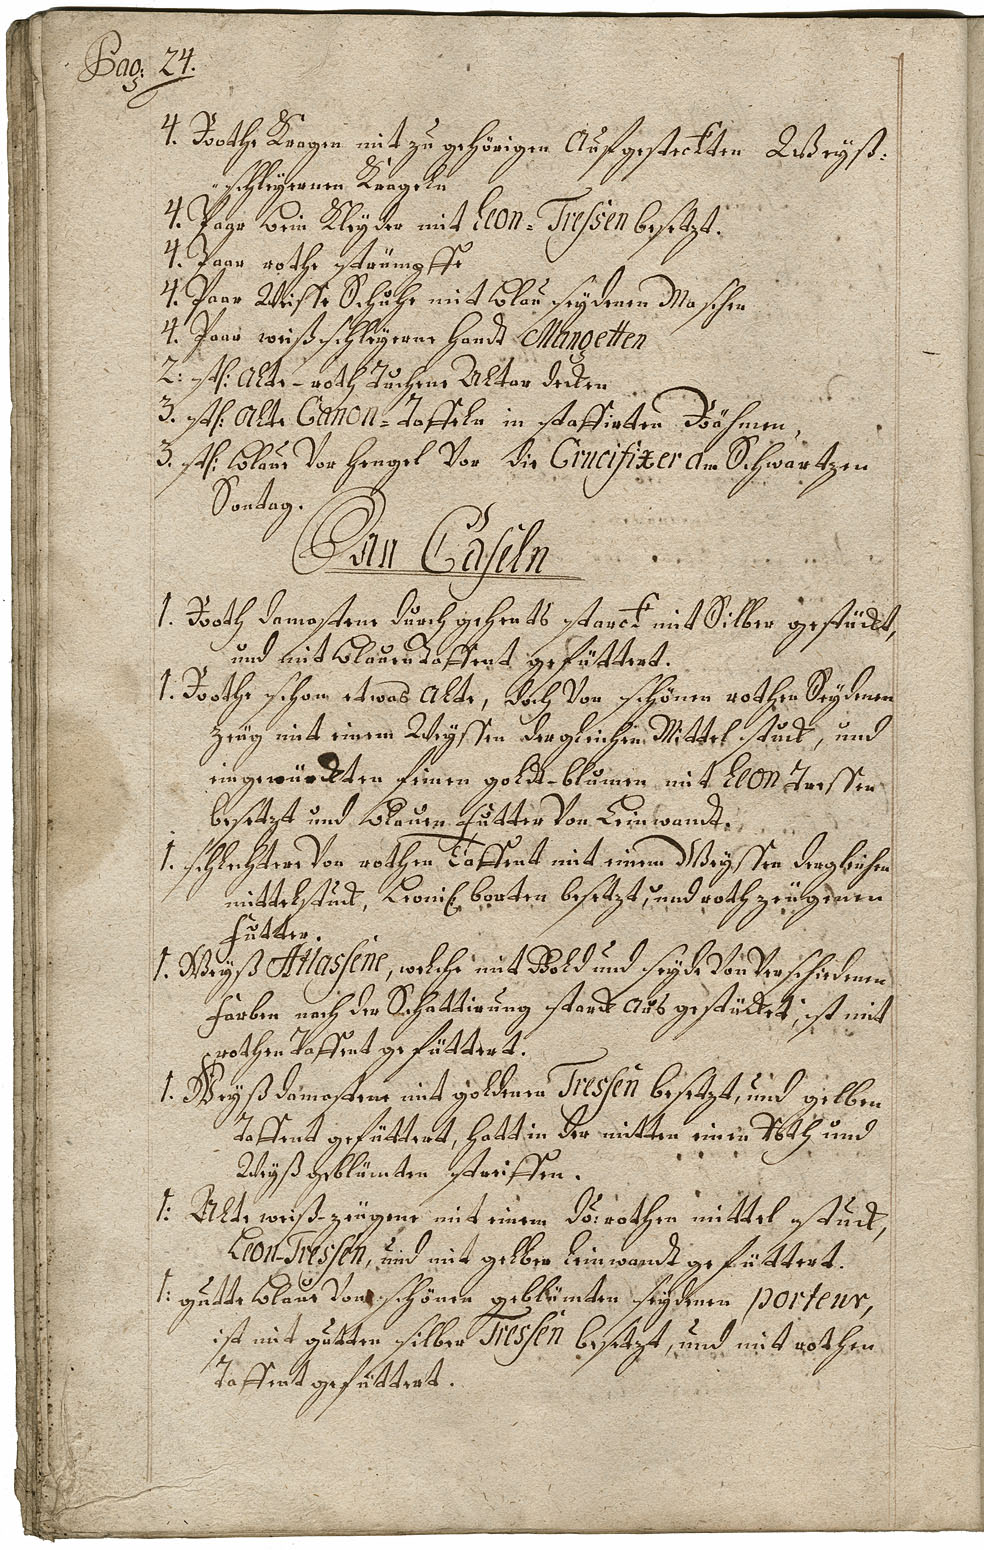 Pag: 24.
4. Rothe Kragen mit zu gehörigen Aufgesteckten Weyß-
schleyernen Krageln
4. Paar bein Kleyder mit Leon-Tressen besetzt.
4. Paar rothe strümpffe
4. Paar Weisse Schuhe mit blau seydenen Maschen
4. Paar weiß schleyerne Handt Mangetten
2: st: Alte-roth Tuchene Altar decken
3. st: Alte Canon-Taffeln in staffirten Rähmen,
3. st: blaue Vor hengel Vor die Crucifixer am Schwartzen
Sontag.
An Caseln
1. Roth damastene durch gehents starck mit Silber gestückt,
und mit blauen Taffent gefüttert.
1. Rothe schon etwas Alte, doch Von schönen rothen Seydenen
zeüg mit einem Weyssen dergleichen Mittel stuck, und
eingewürckten feinen goldt-blumen mit Leon Tressen
besetzt und blauen Futter Von Leinwandt.
1. schlechtere Von rothen Taffent mit einem Weyssen dergleichen
mittelstuck, Leonis: borten besetzt, und roth zeügenen
Futter.
1. Weyß Atlassene, welche mit Gold und seyde Von Verschiedenen
Farben nach der Schattirung starck ausgestücket, ist mit
rothen Taffent gefüttert.
1. Weyß damastene mit goldenen Tressen besetzt, und gelben
Taffent gefüttert, hatt in der mitten einen Roth und
Weyß geblümten streiffen.
1: Alte weiß-zeügene mit einem do: rothen mittel stuck,
Leon-Tressen, und mit gelber Leinwandt gefüttert.
1: gutte blaue Von schönen geblümten seydenen porteur,
ist mit gutten silber Tressen besetzt, und mit rothen
Taffent gefüttert.